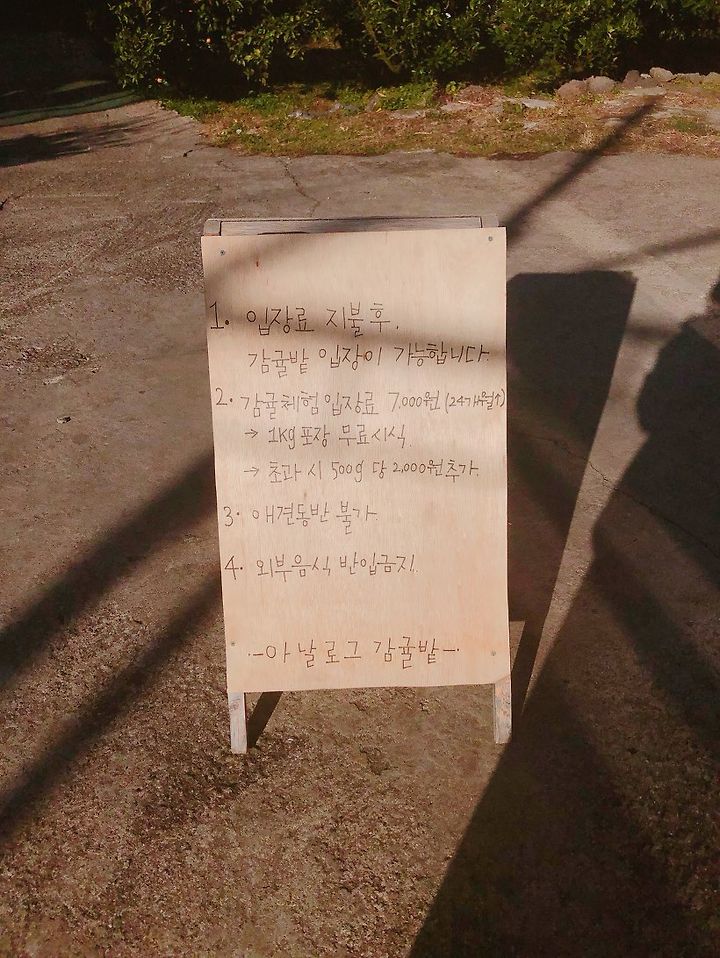 1. 입장료 지불 후,
감귤밭 입장이 가능합니다.
2. 감귤체험 입장료 7,000원 (24개월↑)
→ 1kg 포장 무료시식.
→ 초과 시 500g 당 2,000원 추가.
3. 애견동반 불가.
4. 외부음식 반입금지.
·-아날로그 감귤밭-·